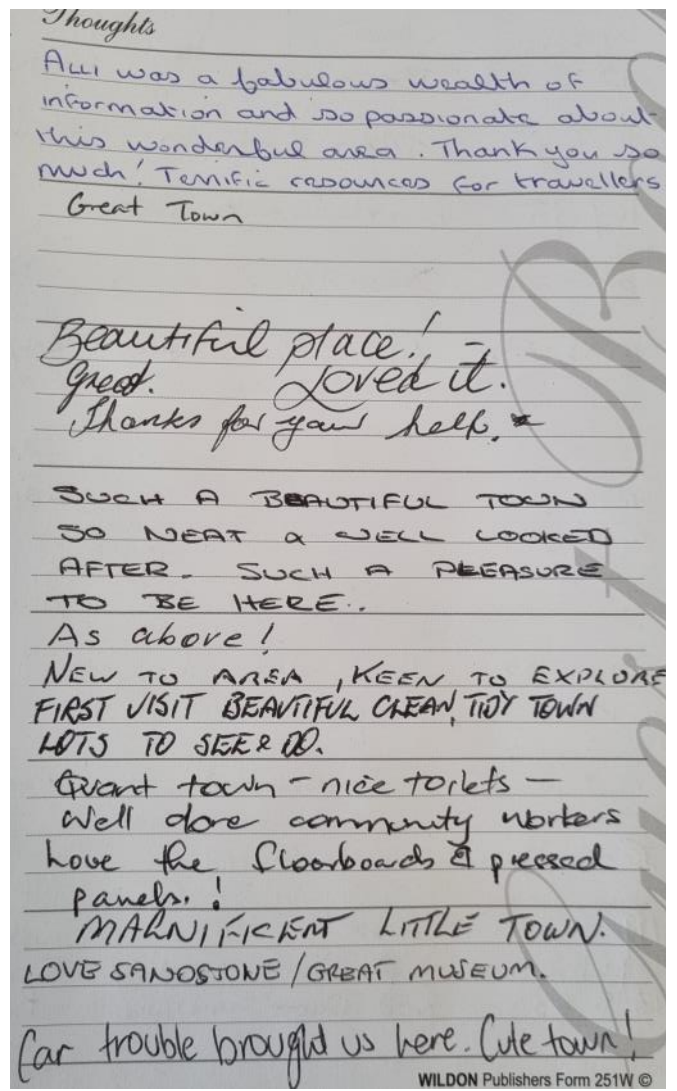 Thoughts
Alli was a fabulous wealth of
information and so passionate about
this wonderful area. Thank you so
much! Terrific resources for travellers
Great Town
Beautiful place!
Great. Loved it.
Thanks for your help.
SUCH A BEAUTIFUL TOWN
SO NEAT & WELL LOOKED
AFTER. SUCH A PLEASURE
TO BE HERE..
As above!
NEW TO AREA, KEEN TO EXPLORE
FIRST VISIT BEAUTIFUL CLEAN, TIDY TOWN
LOTS TO SEE & DO.
Quant town - nice toilets -
Well done community workers
Love the floorboards & pressed
panels.!
MAGNIFICENT LITTLE TOWN.
LOVE SANDSTONE / GREAT MUSEUM.
Car trouble brought us here. Cute town!
WILDON Publishers Form 251W ©